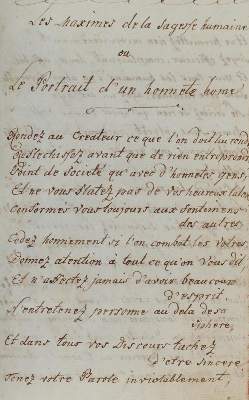 Les Maximes de la sagesse humaine
ou
Le Portrait d'un honnete home
Rendez au Createur ce que l'on doit lui rendre
Reflechissez avant que de rien entreprendre
Point de Societé qu'avec d'honnetes gens,
Et ne vous flatez pas de vos heureux talens
Conformés vous toujours aux sentimens
des autres,
Cedez honnement si l'on combat les votres
Donnez atention à tout ce qu'on vous dit
Et n'affectez jamais d'avoir beaucoup
D'esprit.
N'entretenez personne au dela de sa
sphere,
Et dans tous vos discours tachez
D'etre sincere
Tenez votre Parole inviolablement,